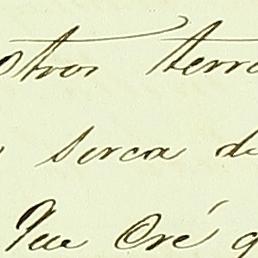 otros terre
serca de
Que Oré q